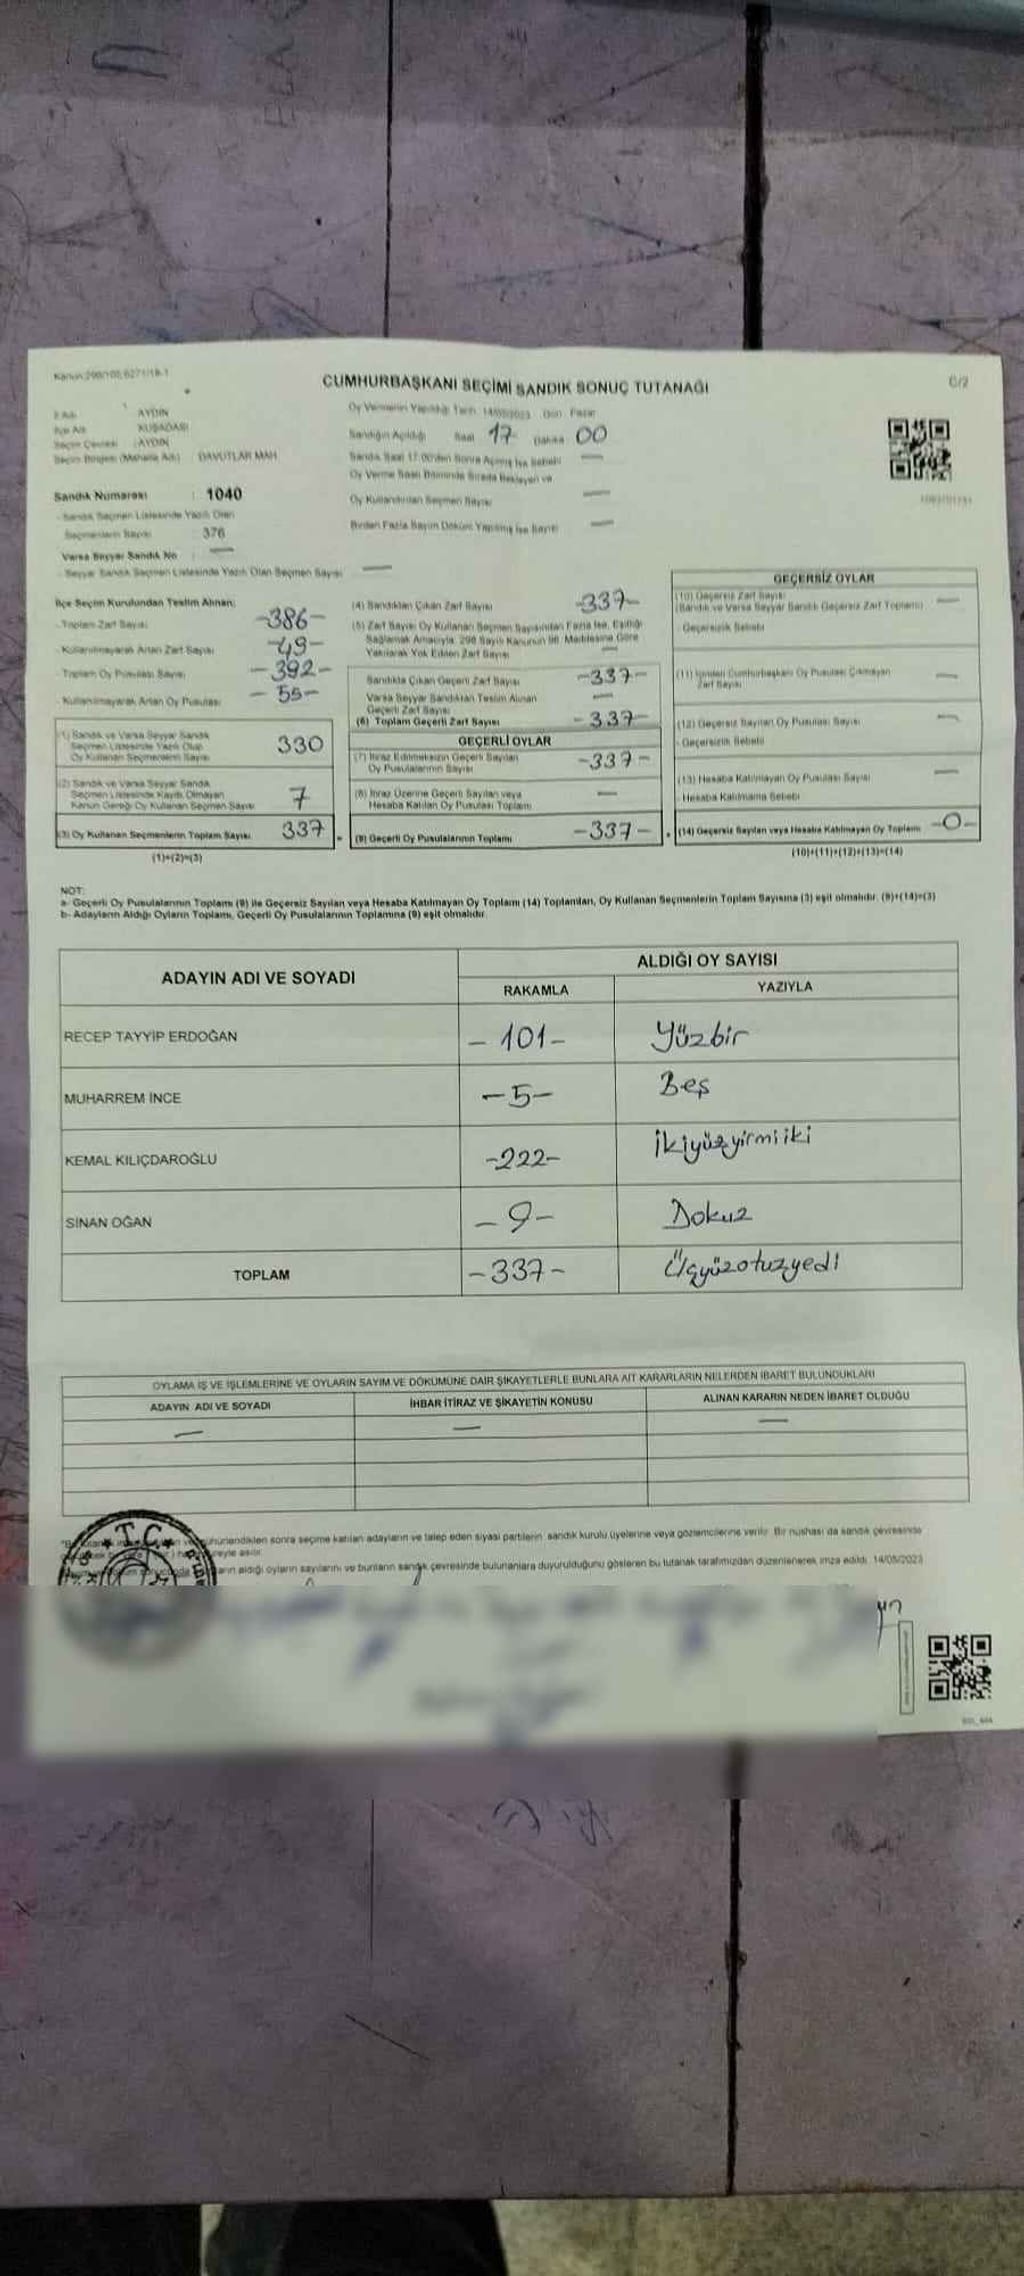 Kanun:298/105,6271/18-1
CUMHURBAŞKANI SEÇİMİ SANDIK SONUÇ TUTANAĞI
C/2
İl Adı : AYDIN
İlçe Adı : KUŞADASI
Seçim Çevresi : AYDIN
Seçim Bölgesi (Mahalle Adı) : DAVUTLAR MAH
Oy Vermenin Yapıldığı Tarih 14/05/2023 Gün Pazar
Sandığın Açıldığı Saat 17 Dakika 00
Sandık Saat 17.00'den Sonra Açılmış İse Sebebi —
Oy Verme Saati Bitiminde Sırada Bekleyen ve
Oy Kullandırılan Seçmen Sayısı —
Birden Fazla Sayım Döküm Yapılmış İse Sayısı —
Sandık Numarası : 1040
- Sandık Seçmen Listesinde Yazılı Olan
Seçmenlerin Sayısı : 376
Varsa Seyyar Sandık No : —
- Seyyar Sandık Seçmen Listesinde Yazılı Olan Seçmen Sayısı —
İlçe Seçim Kurulundan Teslim Alınan;
- Toplam Zarf Sayısı -386-
- Kullanılmayarak Artan Zarf Sayısı -49-
- Toplam Oy Pusulası Sayısı -392-
- Kullanılmayarak Artan Oy Pusulası -55-
(1) Sandık ve Varsa Seyyar Sandık
Seçmen Listesinde Yazılı Olup
Oy Kullanan Seçmenlerin Sayısı 330
(2) Sandık ve Varsa Seyyar Sandık
Seçmen Listesinde Kayıtlı Olmayan
Kanun Gereği Oy Kullanan Seçmen Sayısı 7
(3) Oy Kullanan Seçmenlerin Toplam Sayısı 337
(1)+(2)=(3)
(4) Sandıktan Çıkan Zarf Sayısı -337-
(5) Zarf Sayısı Oy Kullanan Seçmen Sayısından Fazla İse, Eşitliği
Sağlamak Amacıyla, 298 Sayılı Kanunun 98. Maddesine Göre
Yakılarak Yok Edilen Zarf Sayısı —
Sandıkta Çıkan Geçerli Zarf Sayısı -337-
Varsa Seyyar Sandıktan Teslim Alınan
Geçerli Zarf Sayısı —
(6) Toplam Geçerli Zarf Sayısı -337-
GEÇERLİ OYLAR
(7) İtiraz Edilmeksizin Geçerli Sayılan
Oy Pusulalarının Sayısı -337-
(8) İtiraz Üzerine Geçerli Sayılan veya
Hesaba Katılan Oy Pusulası Toplamı —
(9) Geçerli Oy Pusulalarının Toplamı -337-
GEÇERSİZ OYLAR
(10) Geçersiz Zarf Sayısı
(Sandık ve Varsa Seyyar Sandık Geçersiz Zarf Toplamı) —
- Geçersizlik Sebebi
(11) İçinden Cumhurbaşkanı Oy Pusulası Çıkmayan
Zarf Sayısı —
(12) Geçersiz Sayılan Oy Pusulası Sayısı —
- Geçersizlik Sebebi
(13) Hesaba Katılmayan Oy Pusulası Sayısı —
- Hesaba Katılmama Sebebi
(14) Geçersiz Sayılan veya Hesaba Katılmayan Oy Toplamı -0-
(10)+(11)+(12)+(13)=(14)
NOT:
a- Geçerli Oy Pusulalarının Toplamı (9) ile Geçersiz Sayılan veya Hesaba Katılmayan Oy Toplamı (14) Toplamları, Oy Kullanan Seçmenlerin Toplam Sayısına (3) eşit olmalıdır. (9)+(14)=(3)
b- Adayların Aldığı Oyların Toplamı, Geçerli Oy Pusulalarının Toplamına (9) eşit olmalıdır.
ADAYIN ADI VE SOYADI
ALDIĞI OY SAYISI
RAKAMLA YAZIYLA
RECEP TAYYİP ERDOĞAN -101- Yüzbir
MUHARREM İNCE -5- Beş
KEMAL KILIÇDAROĞLU -222- İkiyüzyirmiiki
SİNAN OĞAN -9- Dokuz
TOPLAM -337- Üçyüzotuzyedi
OYLAMA İŞ VE İŞLEMLERİNE VE OYLARIN SAYIM VE DÖKÜMÜNE DAİR ŞİKAYETLERLE BUNLARA AİT KARARLARIN NELERDEN İBARET BULUNDUKLARI
ADAYIN ADI VE SOYADI İHBAR İTİRAZ VE ŞİKAYETİN KONUSU ALINAN KARARIN NEDEN İBARET OLDUĞU
— — —
mühürlendikten sonra seçime katılan adayların ve talep eden siyasi partilerin sandık kurulu üyelerine veya gözlemcilerine verilir. Bir nüshası da sandık çevresinde
süreyle asılır.
aldığı oyların sayılarını ve bunların sandık çevresinde bulunanlara duyurulduğunu gösteren bu tutanak tarafımızdan düzenlenerek imza edildi. 14/05/2023
T.C.